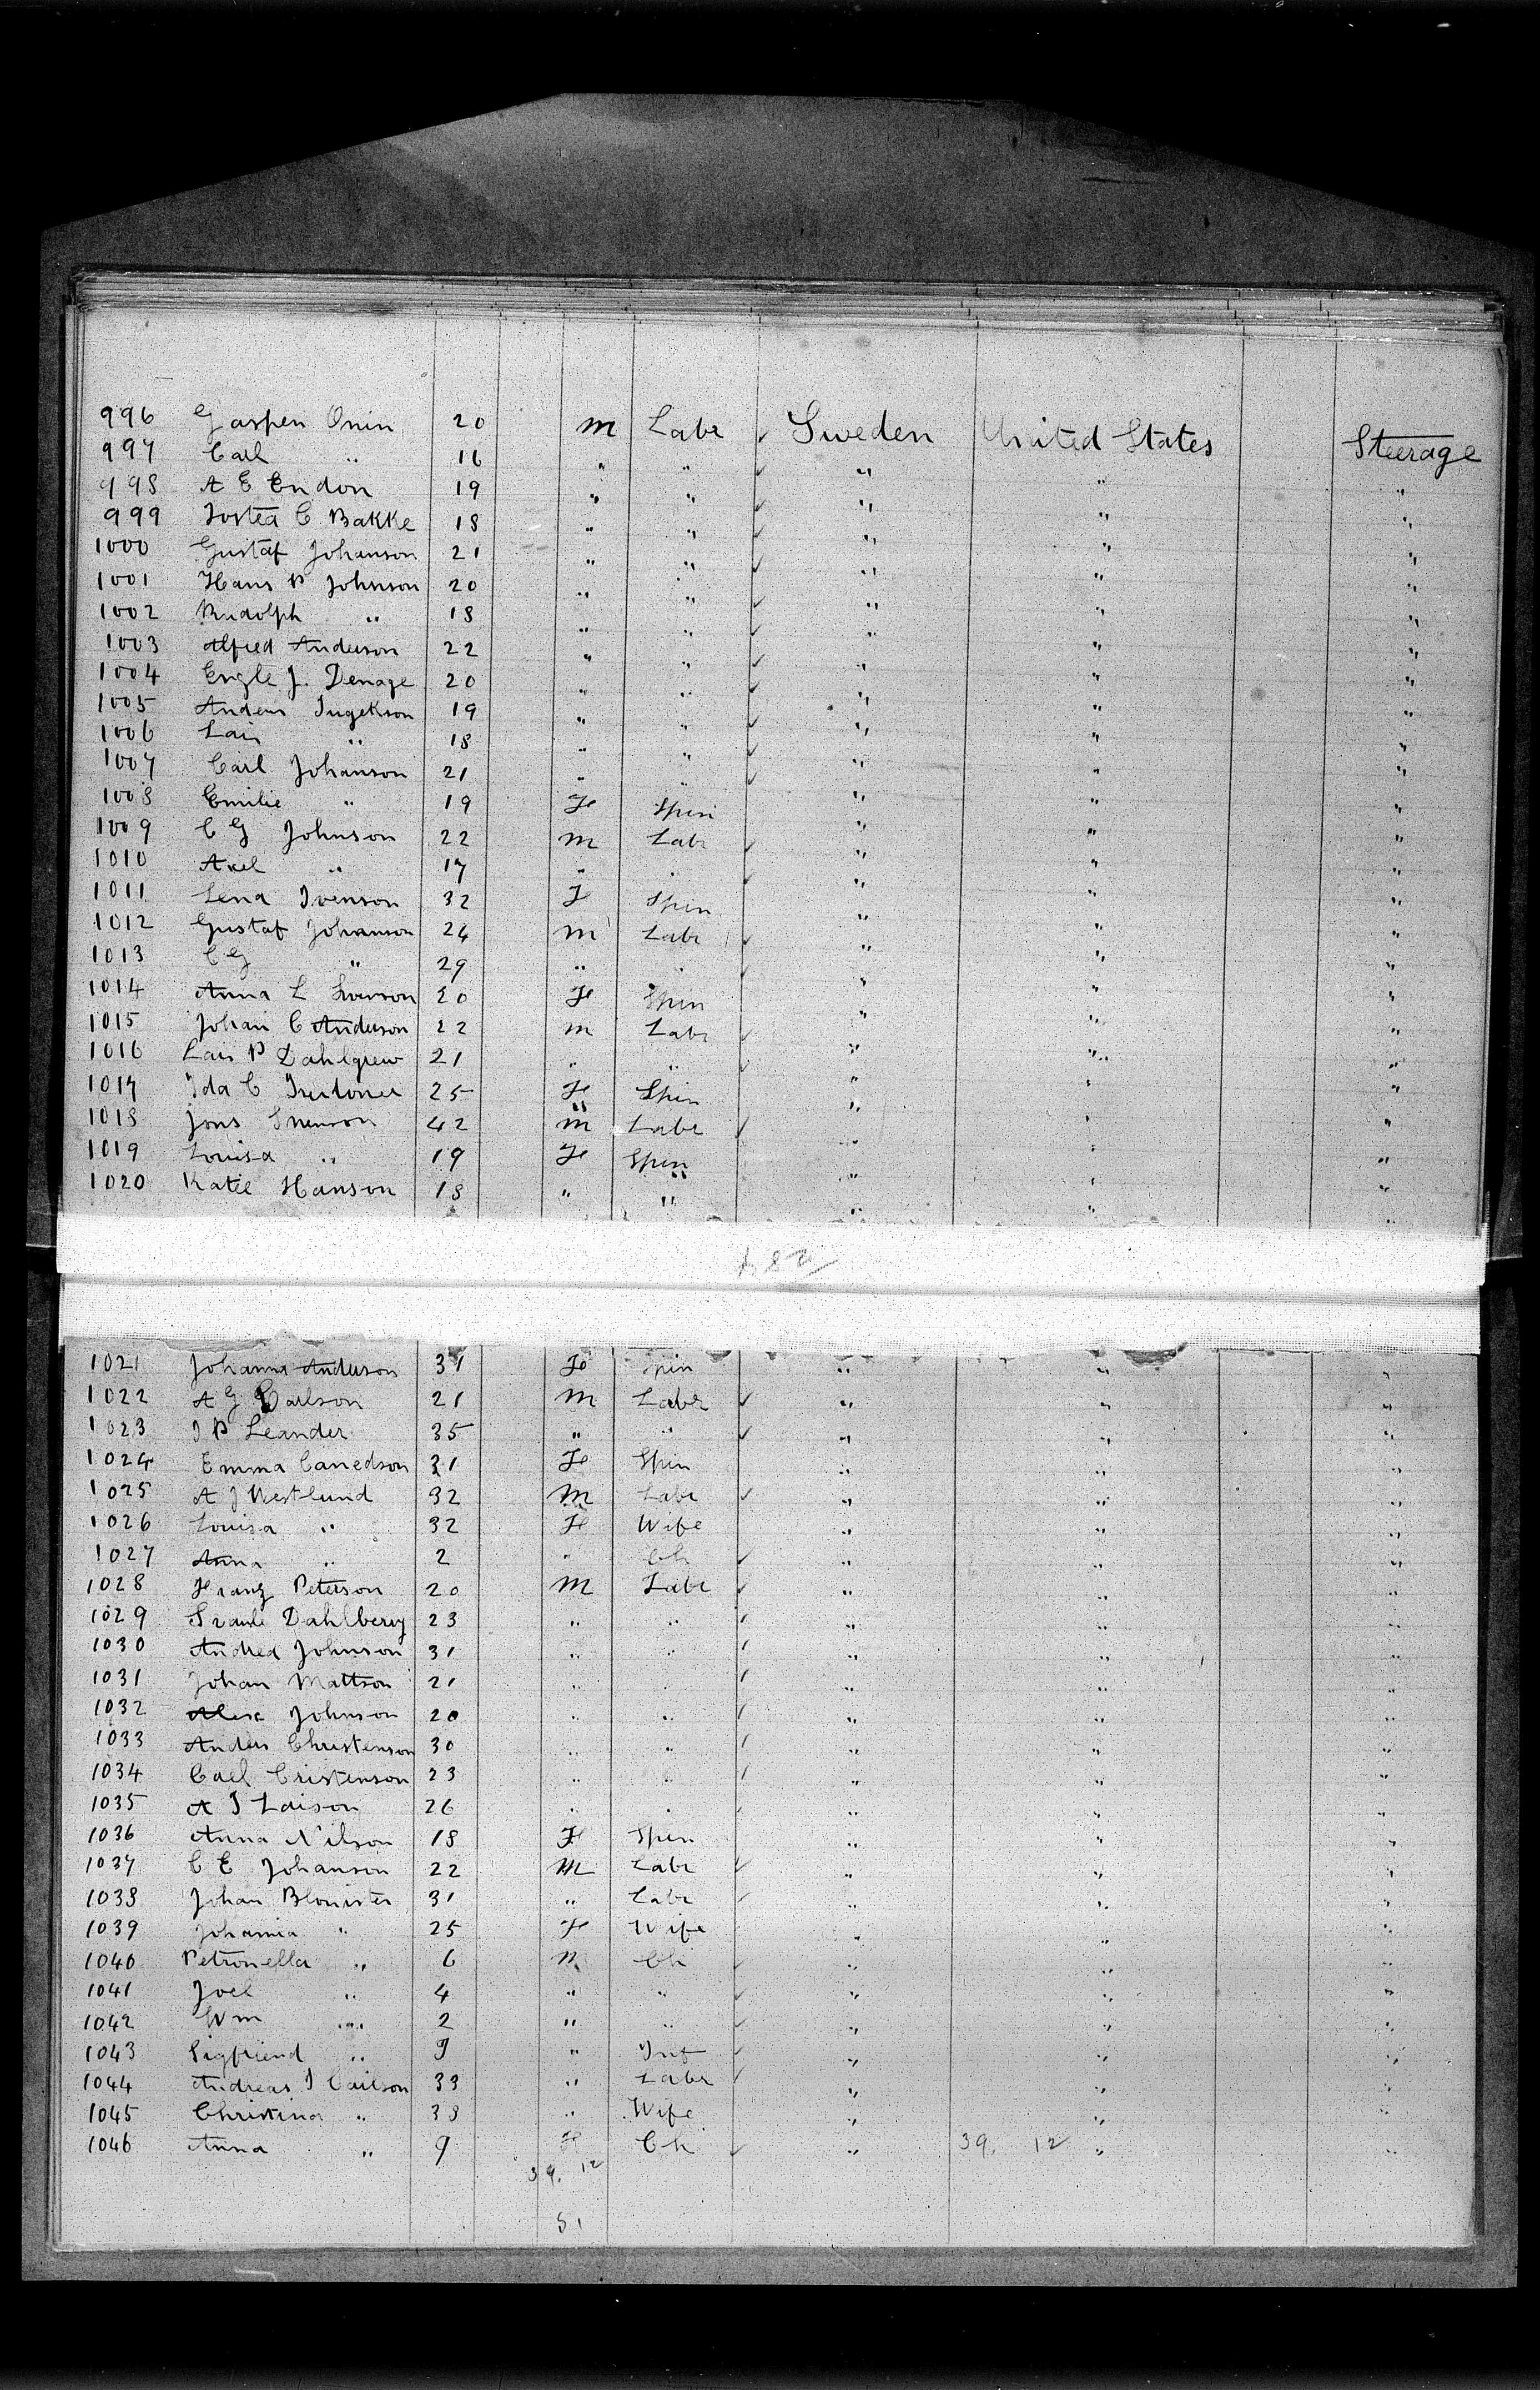 996 Gaspen Onin 20 m Labr Sweden United States Steerage
997 Carl " 16 " " " " "
998 A E Endon 19 " " " " "
999 C Bakke 18 " " " " "
1000 Gustaf Johanson 21 " " " " "
1001 Hans P Johnson 20 " " " " "
1002 Rudolph " 18 " " " " "
1003 Alfred Anderson 22 " " " " "
1004 Engle J. Denage 20 " " " " "
1005 Anders Ingekson 19 " " " " "
1006 Lars " 18 " " " " "
1007 Carl Johanson 21 " " " " "
1008 Emilie " 19 F Spin " " "
1009 C G Johnson 22 m Labr " " "
1010 Axel " 17 " " " " "
1011 Lena Ivenson 32 F Spin " " "
1012 Gustaf Johanson 24 m Labr " " "
1013 C G " 29 " " " " "
1014 Anna L Swenson 20 F Spin " " "
1015 Johan C Anderson 22 m Labr " " "
1016 Lars P Dahlgrew 21 " " " " "
1017 Ida C 25 F Spin " " "
1018 Jons Swenson 42 m Labr " " "
1019 Louisa " 19 F Spin " " "
1020 Katie Hanson 18 " " " " "
1021 Johanna Anderson 31 F Spin " " "
1022 A G Carlson 21 m Labr " " "
1023 J P Leander 35 " " " " "
1024 Emma Canedson 31 F Spin " " "
1025 A J Westlund 32 m Labr " " "
1026 Louisa " 32 F Wife " " "
1027 Anna " 2 " Ch " " "
1028 Franz Peterson 20 m Labr " " "
1029 Dahlberg 23 " " " " "
1030 Andrea Johnson 31 " " " " "
1031 Johan Mattson 21 " " " " "
1032 Alex Johnson 20 " " " " "
1033 Anders Christenson 30 " " " " "
1034 Carl Cristenson 23 " " " " "
1035 A J Larson 26 " " " " "
1036 Anna Nilson 18 F Spin " " "
1037 C E Johanson 22 m Labr " " "
1038 Johan Blomster 31 " Labr " " "
1039 Johanna " 25 F Wife " " "
1040 Petronella " 6 m Ch " " "
1041 Joel " 4 " " " " "
1042 Wm " 2 " " " " "
1043 Sigfriend " 9 " Inf " " "
1044 Andreas J Carlson 33 " Labr " " "
1045 Christina " 38 " Wife " " "
1046 Anna " 9 F Ch " 39. 12 " "
39. 12
51